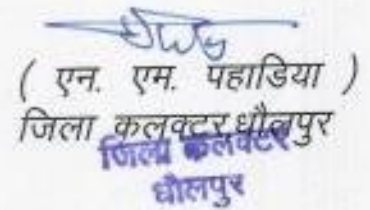 ( एन. एम. पहाडिया )
जिला कलक्टर,धौलपुर
जिला कलेक्टर
धौलपुर